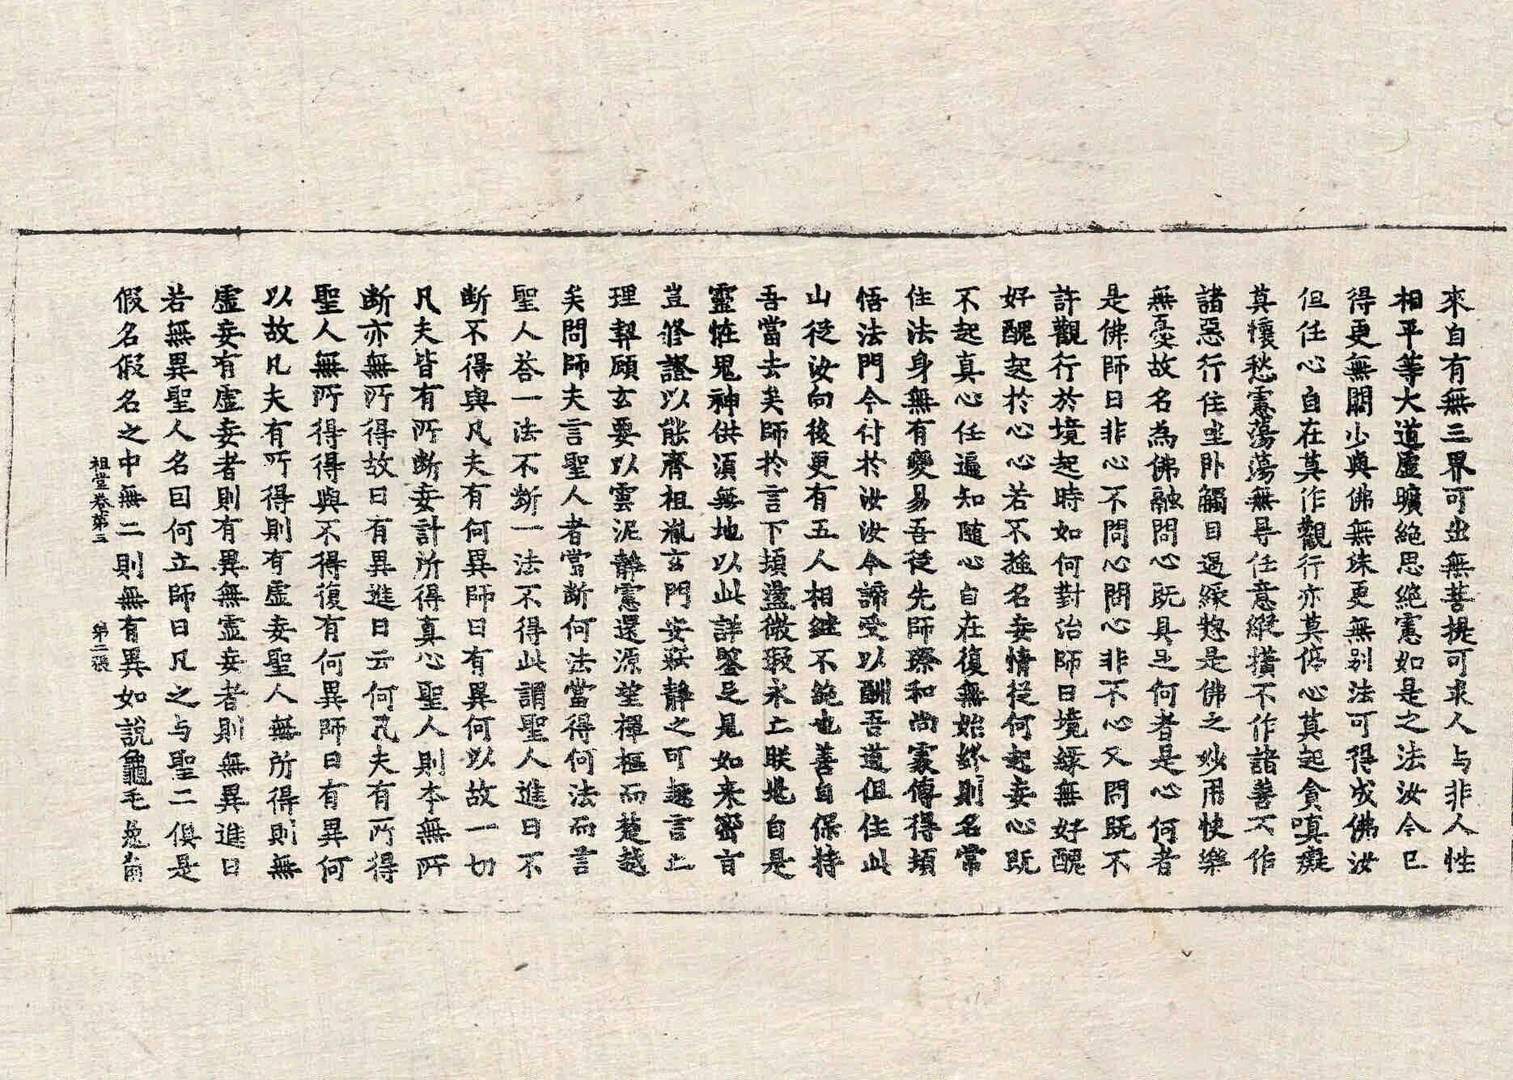 來自有無三界可出無菩提可求人与非人性
相平等大道虛曠絕思絕慮如是之法汝今已
得更無闕少與佛無殊更無别法可得成佛汝
但任心自在莫作觀行亦莫停心莫起貪嗔癡
莫懷愁慮蕩蕩無㝵任意縱橫不作諸善不作
諸惡行住坐卧觸目遇緣惣是佛之妙用快樂
無憂故名為佛融問心既具足何者是心何者
是佛師曰非心不問心問心非不心又問既不
許觀行於境起時如何對治師曰境緣無好醜
好醜起於心心若不強名妄情從何起妄心既
不起真心任遍知随心自在復無始終則名常
住法身無有變易吾從先師璨和尚處傳得頓
悟法門今付於汝汝今諦受以酬吾道但住此
山從汝向後更有五人相継不絕也善自保持
吾當去矣師於言下頓盡微瑕永亡朕兆自是
靈恠鬼神供須無地以此詳鑒足見如来密旨
豈修證以能齊祖胤玄門安寂静之可趣言亡
理契顧玄要以雲泥静慮還源望禪樞而楚越
矣問師夫言聖人者當断何法當得何法而言
聖人荅一法不断一法不得此謂聖人進曰不
断不得與凡夫有何異師曰有異何以故一切
凡夫皆有所断妄計所得真心聖人則本無所
断亦無所得故曰有異進曰云何凡夫有所得
聖人無所得得與不得復有何異師曰有異何
以故凡夫有所得則有虛妄聖人無所得則無
虛妄有虛妄者則有異無虛妄者則無異進曰
若無異聖人名曰何立師曰凡之与聖二俱是
假名假名之中無二則無有異如說龜毛兔角
祖堂卷第三 第二張